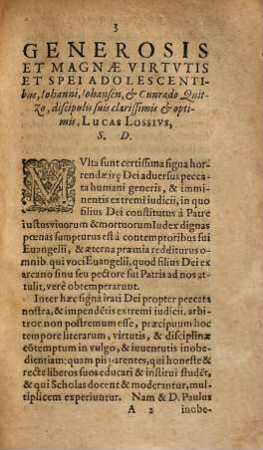 3
GENEROSIS
ET MAGNÆ VIRTVTIS
ET SPEI ADOLESCENTI-
bus, Iohanni, Iohansen, & Cunrado Quit-
zo, discipulis suis clarissimis & opti-
mis, LVCAS LOSSIVS,
S. D.
MVlta sunt certissima signa hor-
rendæ irę Dei aduersus pecca-
ta humani generis, & immi-
nentis extremi iudicii, in quo
filius Dei constitutus à Patre
iustus viuorum & mortuorum Iudex dignas
pœnas sumpturus est à contemptoribus sui
Euangelii, & æterna præmia redditurus o-
mnib. qui voci Euangelii, quod filius Dei ex
arcano sinu seu pectore sui Patris ad nos at-
tulit, verè obtemperarunt.
Inter hæc signa irati Dei propter peccata
nostra, & impendētis extremi iudicii, arbitror
non postremum esse, præcipuum hoc
tempore literarum, virtutis, & disciplinæ
cōtemptum in vulgo, & iuuentutis inobe-
dientiam: quam pii parentes, qui honeste &
recte liberos suos educari & institui studēt,
& qui Scholas docent & moderantur, mul-
tiplicem experiuntur. Nam & D. Paulus
A 2 inobe-